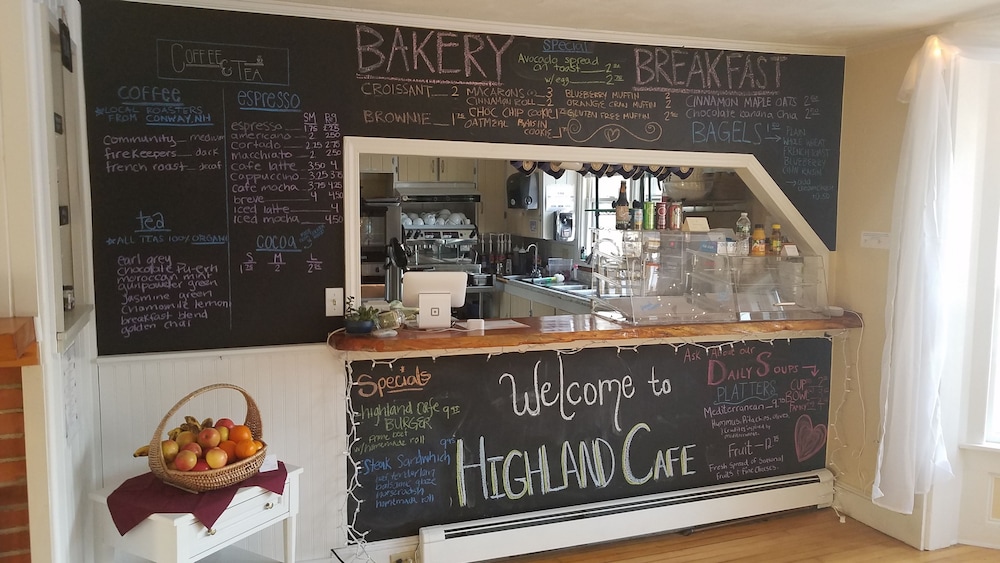 COFFEE & TEA
coffee
*LOCAL ROASTERS
FROM CONWAY, NH
community medium
firekeepers dark
french roast decaf
tea
*ALL TEAS 100% ORGANIC
earl grey
chocolate pu-erh
moroccan mint
gunpowder green
jasmine green
chamomile lemon
breakfast blend
golden chai
espresso
SM
espresso 1.75
americano 2 2.50
cortado 2.25 2.75
macchiato 2 2.50
cafe latte 3.50 4
cappuccino 3.25 3.75
cafe mocha 3.75 4.25
breve 4 4.50
iced latte 4
iced mocha 4.50
cocoa
S M L
2
BAKERY
CROISSANT 2
BROWNIE
special
Avocado spread
on toast
w/egg
MACARONS 3
CINNAMON ROLL 2
CHOC CHIP COOKIE
OATMEAL RAISIN
COOKIE
BLUEBERRY MUFFIN 2
ORANGE CRAN MUFFIN 2
GLUTEN FREE MUFFIN
BREAKFAST
CINNAMON MAPLE OATS
Chocolate banana Chia
BAGELS
PLAIN
FRENCH TOAST
BLUEBERRY
CINN RAISIN
Specials
-Highland Cafe
BURGER
Prime beef
w/homemade roll
-Steak Sandwich
horseradish
homemade roll
Welcome to
HIGHLAND CAFE
Ask About our
DAILY SOUPS
CUP
BOWL
PLATTERS
Mediterranean
Hummus, Pistachios, olives
Fruit
Fresh Spread of Seasonal
Fruits & Fine Cheeses.